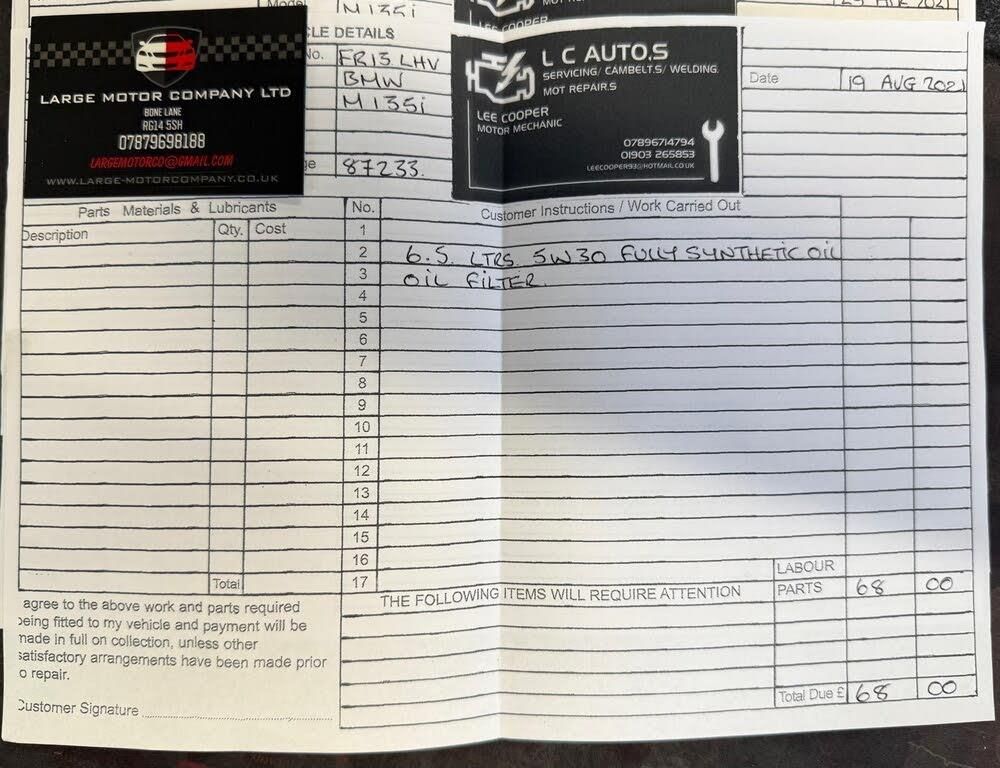 Model
IM135i
MOT REPAIR
LEE COOPER
2021
CLE DETAILS
No. FR13 LHV
BMW
M135i
ge 87233.
LARGE MOTOR COMPANY LTD
BONE LANE
RG14 5SH
07879698188
LARGEMOTORCO@GMAIL.COM
WWW.LARGE-MOTORCOMPANY.CO.UK
L C AUTO.S
SERVICING/ CAMBELT.S/ WELDING.
MOT REPAIR.S
LEE COOPER
MOTOR MECHANIC
07896714794
01903 265853
LEECOOPER93@HOTMAIL.CO.UK
Date 19 AUG 2021
Parts Materials & Lubricants No. Customer Instructions / Work Carried Out
Description Qty. Cost 1
2 6.5. LTRS. 5W30 FULLY SYNTHETIC OIL
3 OIL FILTER.
4
5
6
7
8
9
10
11
12
13
14
15
16
Total 17
LABOUR
PARTS 68 00
THE FOLLOWING ITEMS WILL REQUIRE ATTENTION
agree to the above work and parts required
being fitted to my vehicle and payment will be
made in full on collection, unless other
satisfactory arrangements have been made prior
o repair.
Customer Signature
Total Due £ 68 00